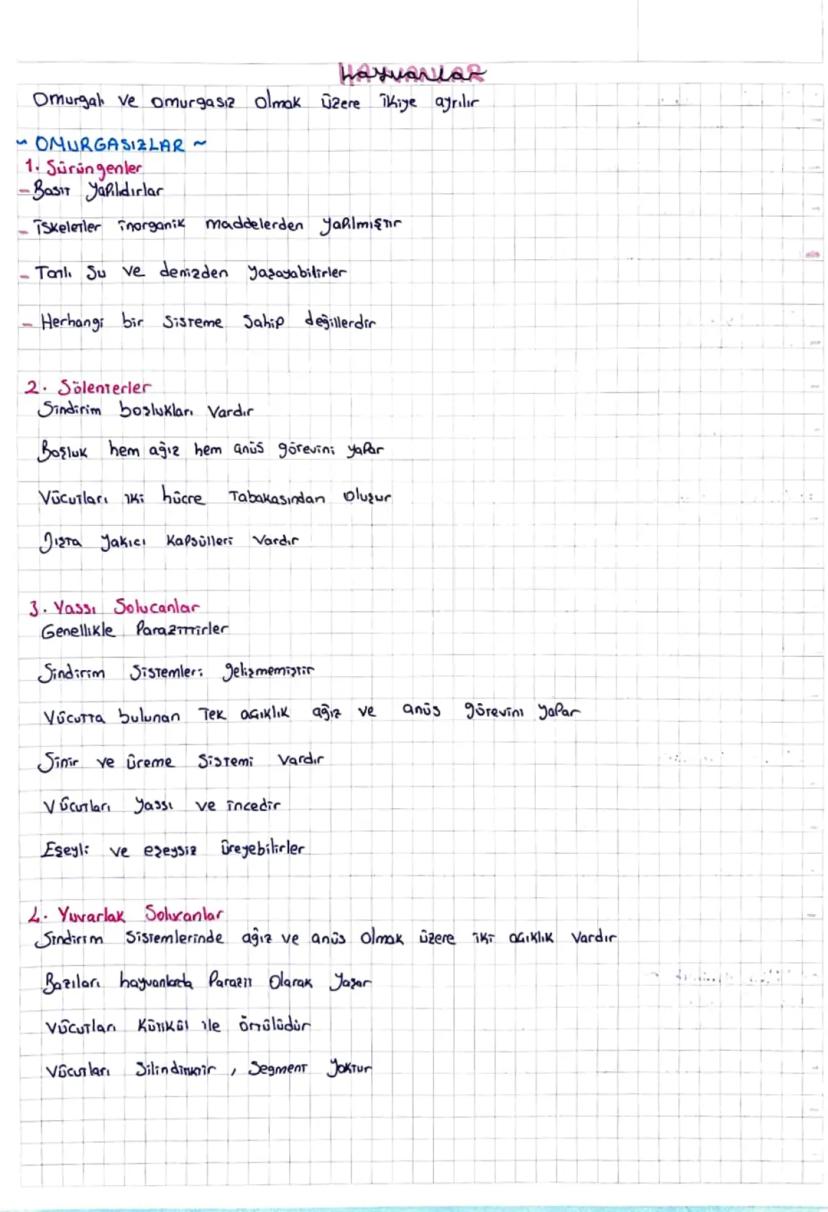 HAYVANLAR
Omurgalı ve omurgasız olmak üzere ikiye ayrılır
~ OMURGASIZLAR ~
1. Sürüngenler
- Basit yapılıdırlar
- iskeletler inorganik maddelerden yapılmıştır
- Tatlı su ve denizden yaşayabilirler
- Herhangi bir sisteme sahip değillerdir
2. Sölenterler
Sindirim boşlukları vardır
Boşluk hem ağız hem anüs görevini yapar
Vücutları iki hücre tabakasından oluşur
Dışta yakıcı kapsülleri vardır
3. Yassı Solucanlar
Genellikle parazittirler
Sindirim sistemleri gelişmemiştir
Vücutta bulunan tek açıklık ağız ve anüs görevini yapar
Sinir ve üreme sistemi vardır
Vücutları yassı ve incedir
Eşeyli ve eşeysiz üreyebilirler
4. Yuvarlak Solucanlar
Sindirim sistemlerinde ağız ve anüs olmak üzere iki açıklık vardır
Bazıları hayvanlarda parazit olarak yaşar
Vücutları kütikül ile örtülüdür
Vücutları silindiriktir, segment yoktur